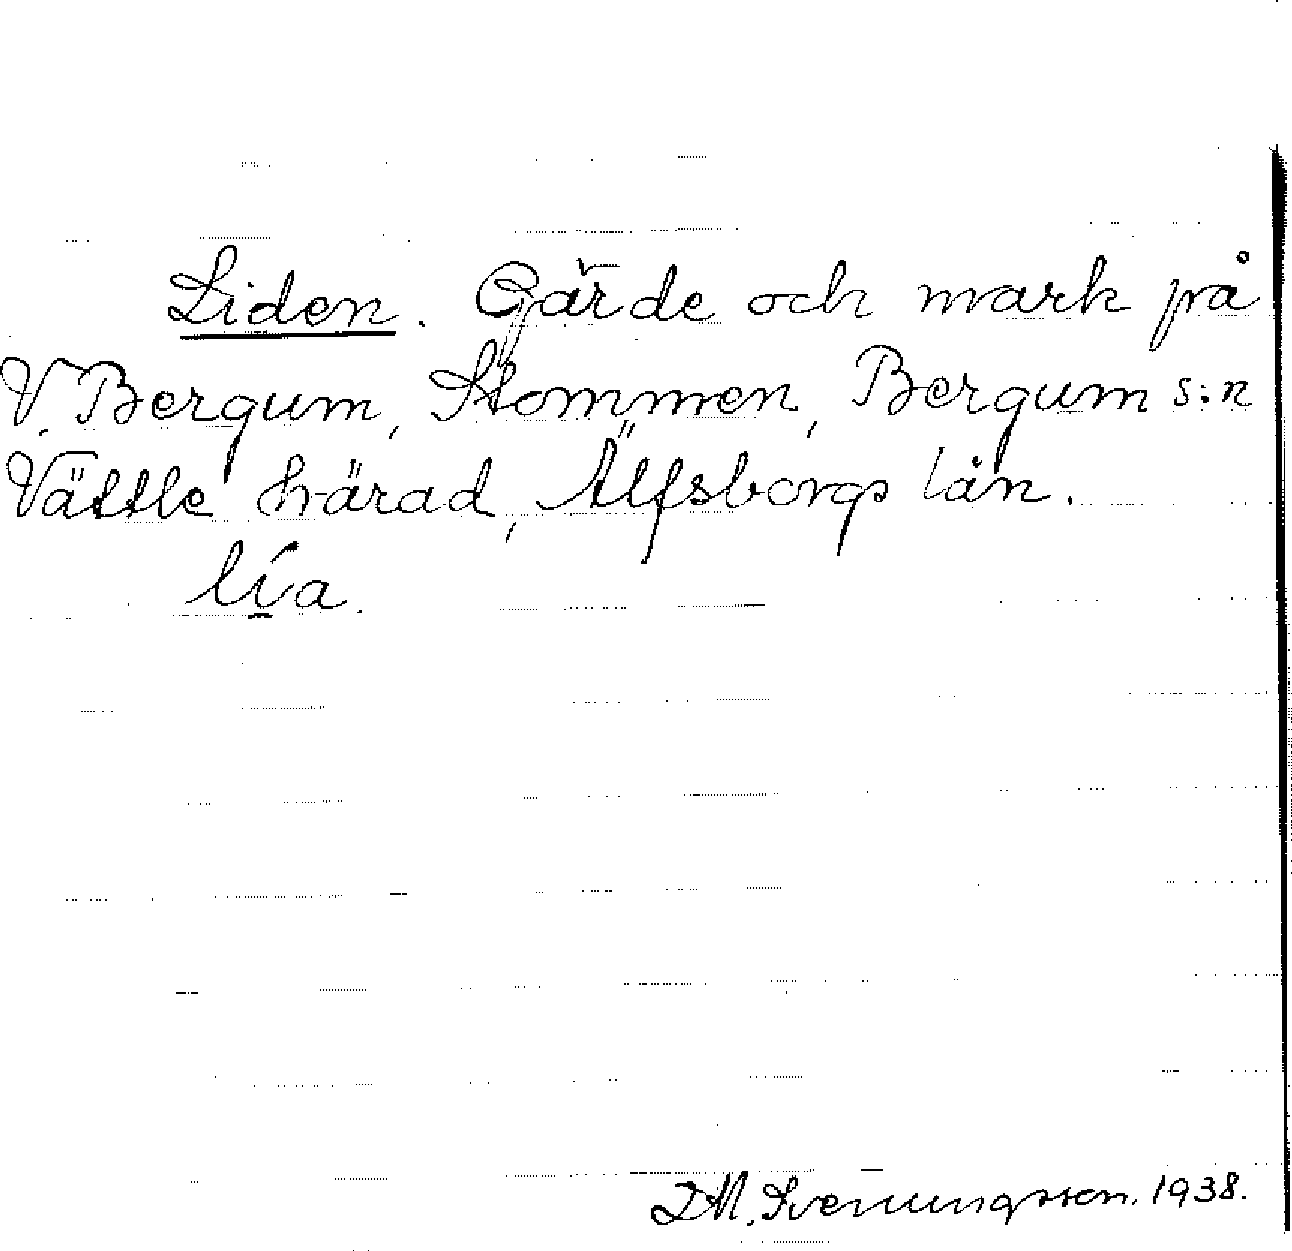 Liden. Gärde och mark på
V. Bergum, Stommen, Bergum s:n
Vättle härad, Älfsborgs län.
lía.
D.M. Svenungsson. 1938.